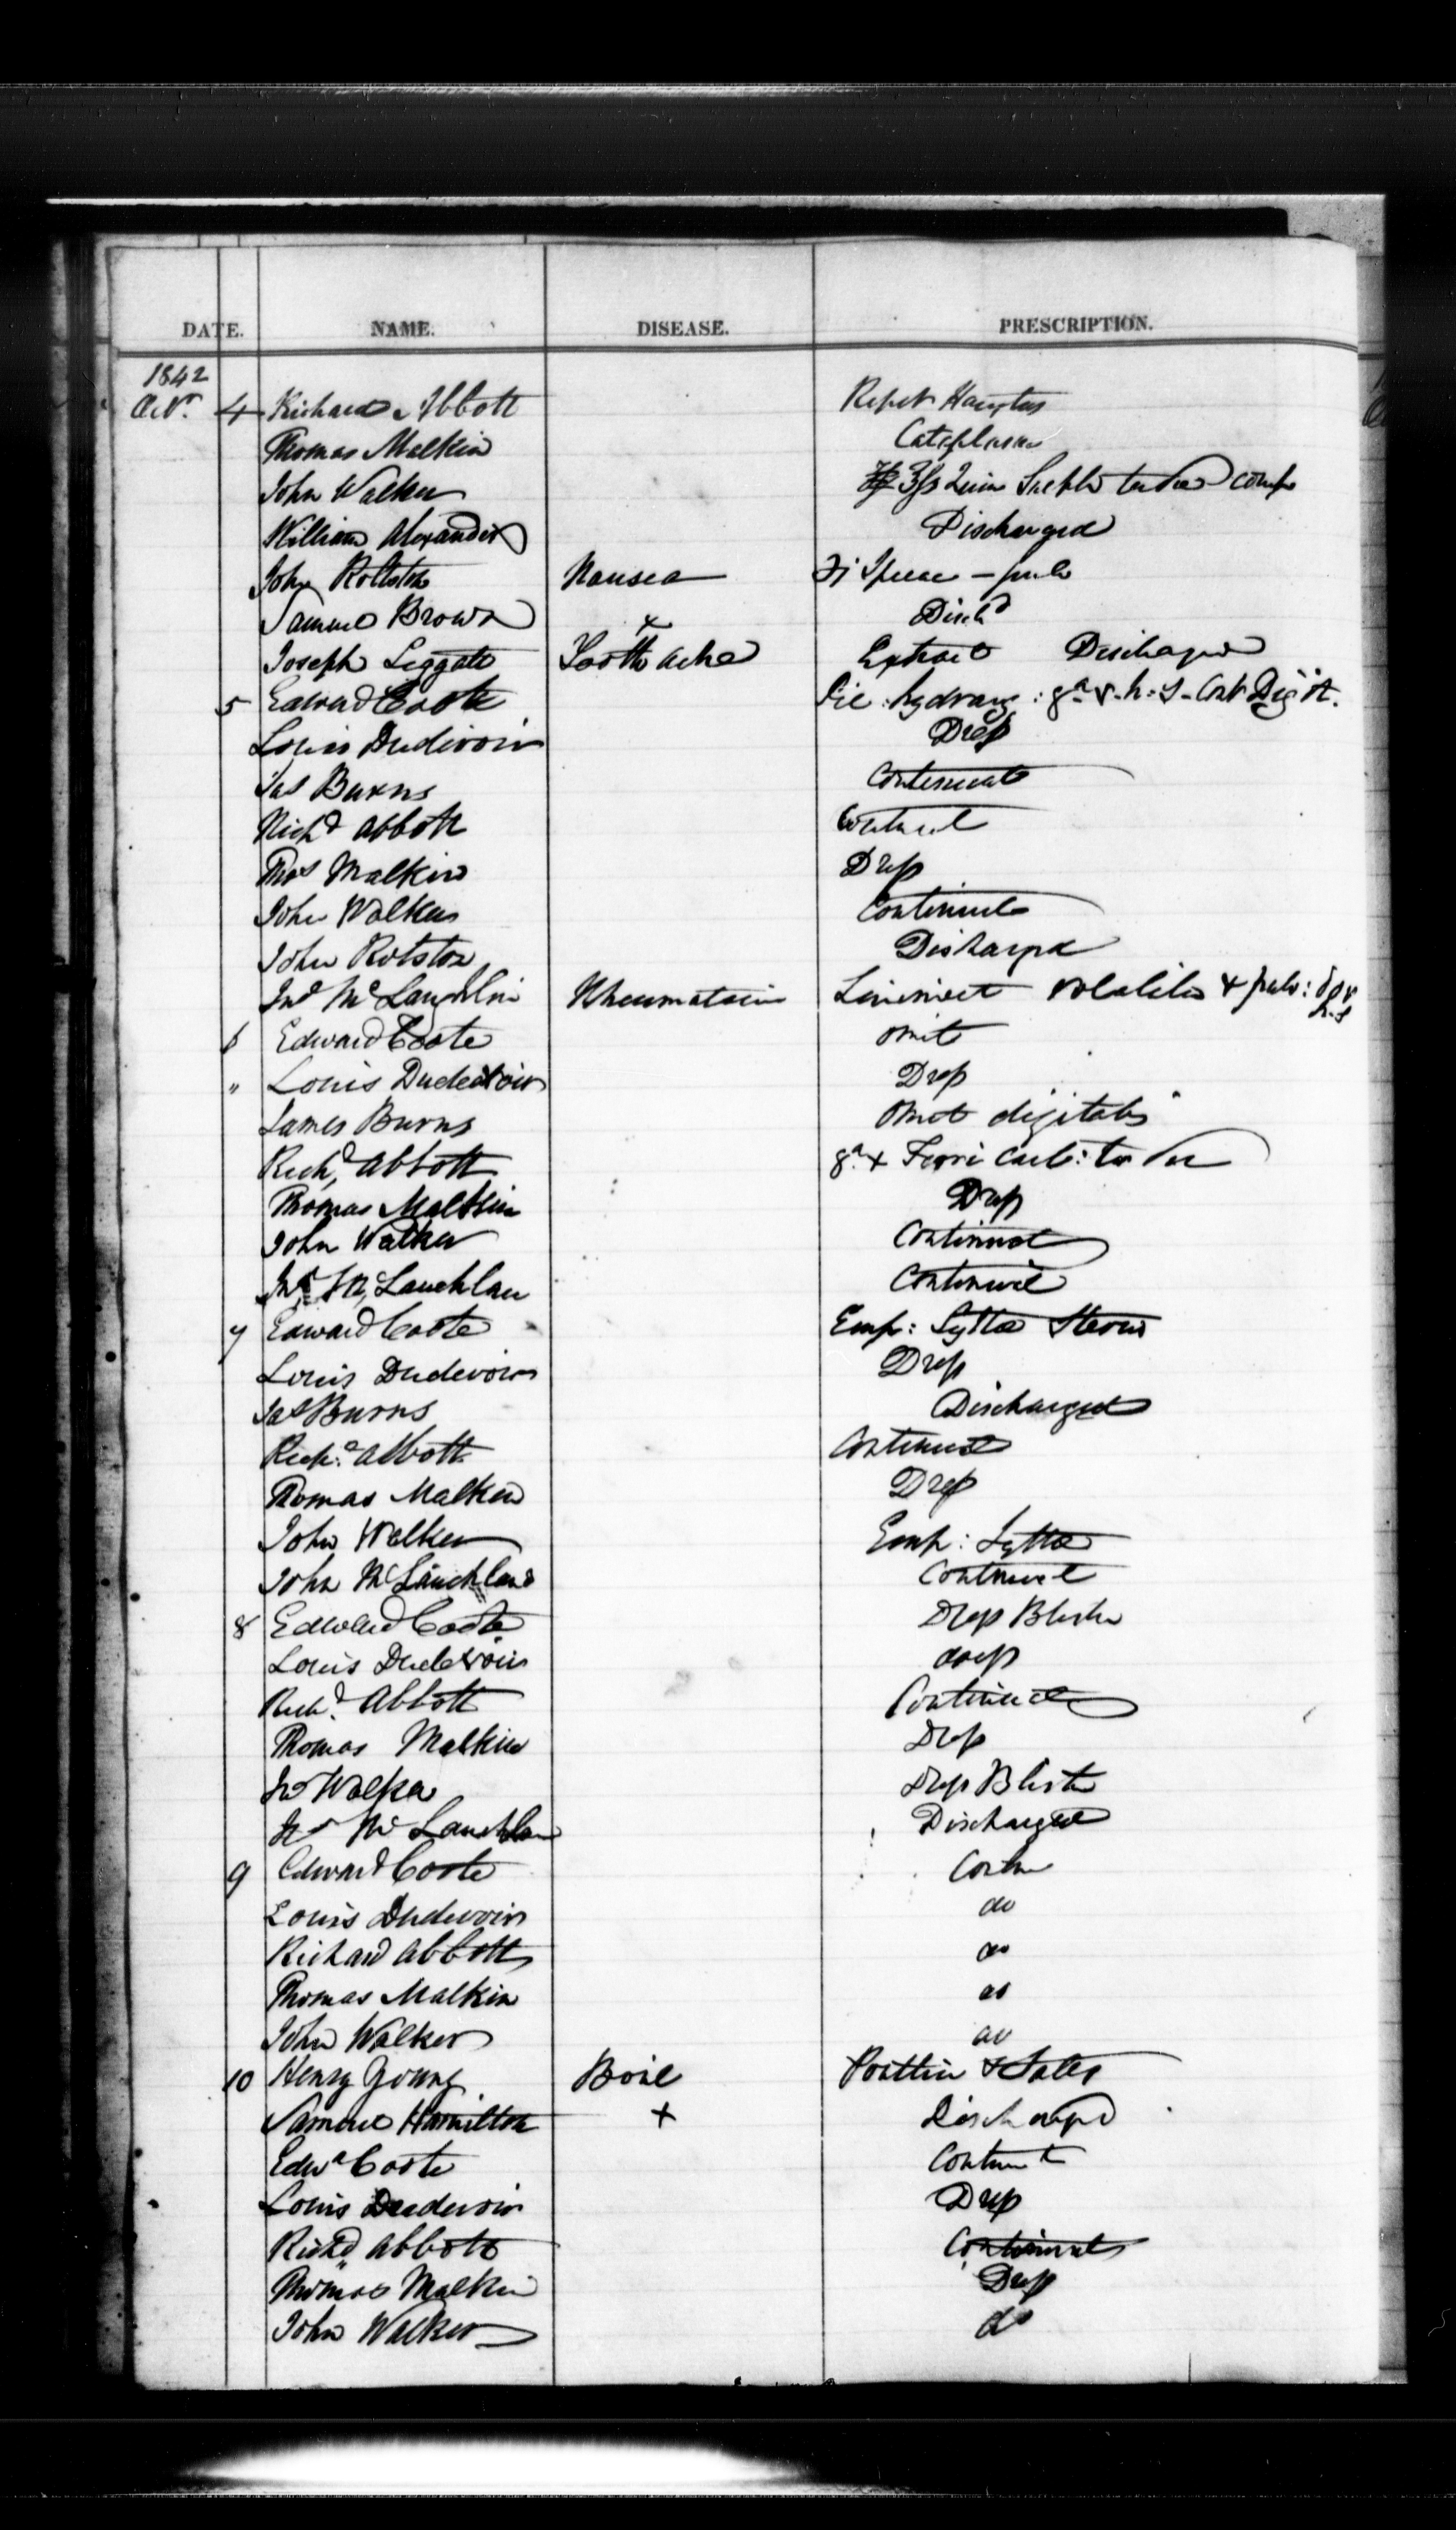 DATE. NAME. DISEASE. PRESCRIPTION.
1842
Octr. 4 Richard Abbott Repet Haustus
Thomas Malkin Cataplasm
John Walker Quin Sulph ter die comp
William Alexander Discharged
John Rolston Nausea Ipecac - pulv
Samuel Brown x Dischd
Joseph Leggate Tooth ache Extract Discharged
5 Edward Coote Pil: hydrarg: gr v. h:s - Cont Digit.
Louis Dudevoir Drop
Jas Burns Continuat
Richd Abbott Continuat
Thos Malkin Drop
John Walker Continuat
John Rolston Discharged
Jno McLaughlin Rheumatism Liniment volatile & pulv: dov
h.s
6 Edward Coote Omit
" Louis Dudevoir Drop
James Burns Omit digitalis
Richd, Abbott gr x Ferri Carb: ter die
Thomas Malkin Drop
John Walker Continuat
Jno Mc Lauchlan Continue
7 Edward Coote Emp: Lyttae Sterno
Louis Dudevoir Drop
Jas Burns Discharged
Richd Abbott Continuat
Thomas Malkin Drop
John Walker Emp: Lyttae
John McLauchlan Continue
8 Edward Coote Drop Blister
Louis Dudevoir drop
Richd. Abbott Continuat
Thomas Malkin Drop
Jno Walker Drop Blister
Jno Mc Lauchlan Discharged
9 Edward Coote Contin
Louis Dudevoir do
Richard Abbott do
Thomas Malkin do
John Walker do
10 Henry Young Boil Poultice & Salts
Samuel Hamilton x Discharged
Edwd Coote Continuat
Louis Dudevoir Drop
Richd Abbott Continuat
Thomas Malkin Drop
John Walker do